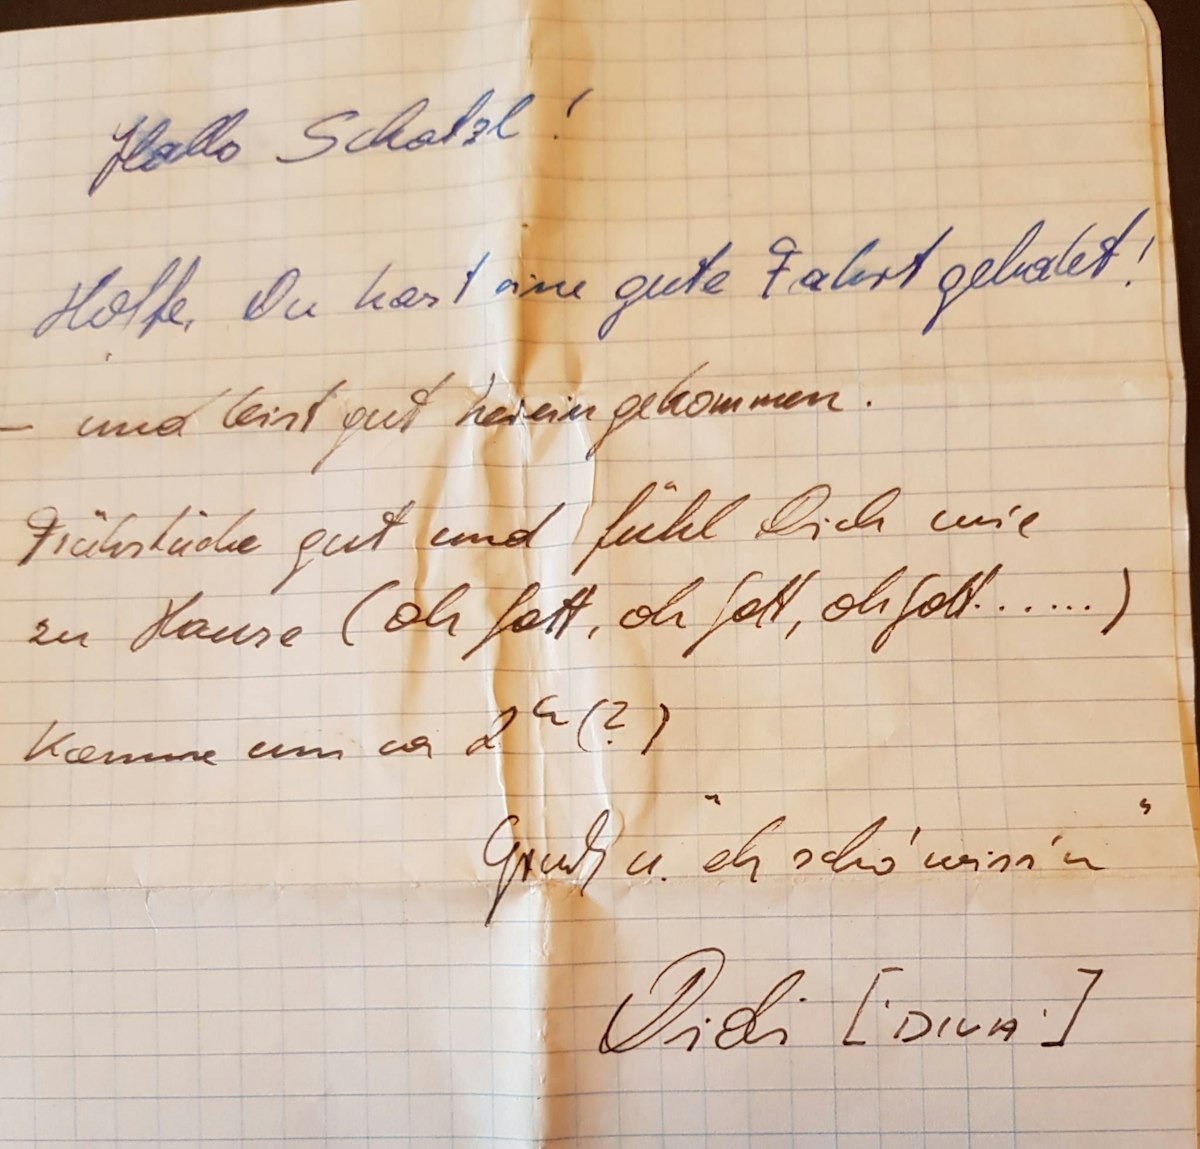 Hallo Schatzl!
Hoffe, Du hast eine gute Fahrt gehabt!
– und bist gut hereingekommen.
Frühstücke gut und fühl Dich wie
zu Hause (oh Gott, oh Gott, oh Gott......)
Komme um ca 2h (?)
Gruß u. "eh scho' wiss'n"
Didi ['DIVA']